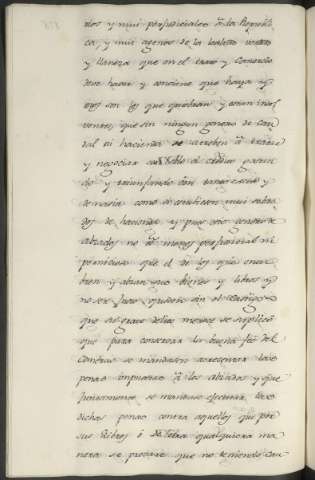 dos y mui perjudiciales a la Republi
ca, y mui agenos de la lealtad verdad
y llaneza que en el trato y Comercio
deve haver y conviene que haya y
otros son los que quiebran y estan insol
ventes, que sin ningun genero de cau
dal ni hacienda se atreben a tratar
y negociar al credito
y triunfando con tanto exceso y
demasia como si estubiesen mui sobra
dos de hacienda y pues este genero de
alzados no es menos perjudicial ni
pernicioso que el de los que encu
bren y alzan sus bienes y libros y
no sea justo queden sin el castigo
que su grave delito merece se suplico
que para conservar la buena fee del
Comercio se mandasen acrecentar las
penas impuestas a los alzados y que
juntamente se mandase executar las
dichas penas contra aquellos que por
sus libros o de otra qualquiera ma
nera se probare que no teniendo cau